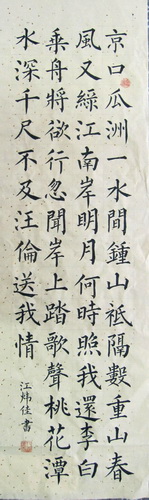 京口瓜洲一水間鍾山祗隔數重山春
風又綠江南岸明月何時照我還李白
乘舟將欲行忽聞岸上踏歌聲桃花潭
水深千尺不及汪倫送我情
江煒佳書